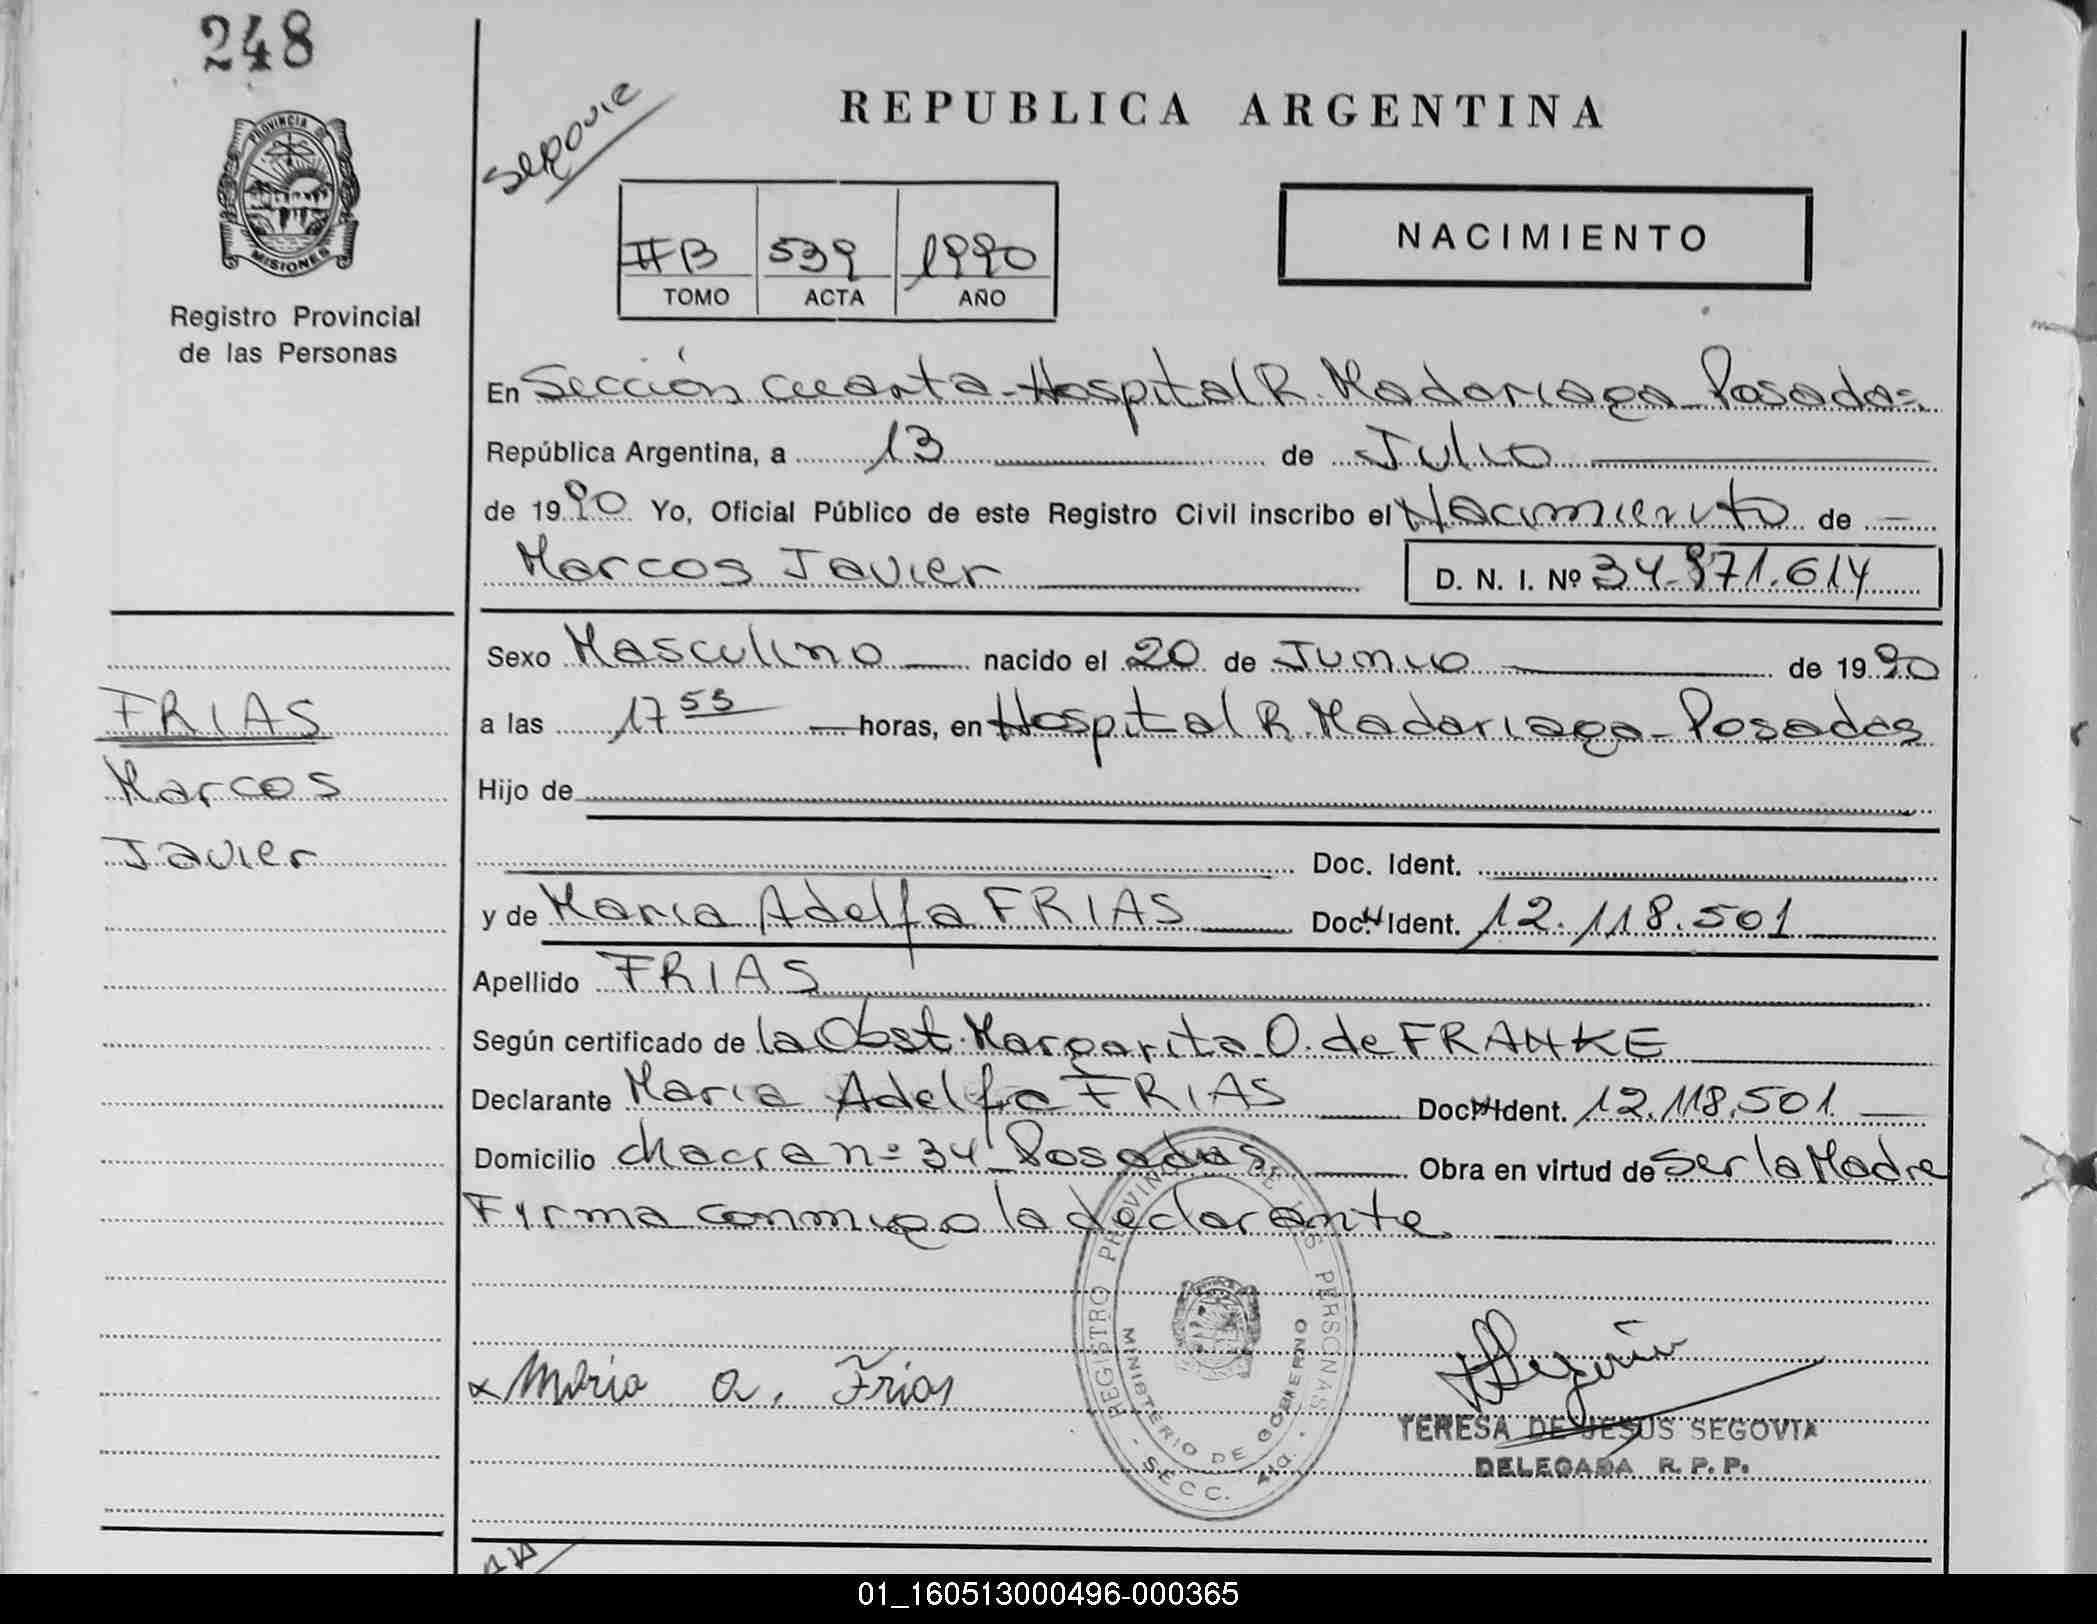 248
PROVINCIA DE
MISIONES
Registro Provincial
de las Personas
FRIAS
Marcos
Javier
Segovia
REPUBLICA ARGENTINA
IIB 539 1990
TOMO ACTA AÑO
NACIMIENTO
En Sección Cuarta - Hospital R. Madariaga - Posadas
República Argentina, a 13 de Julio
de 1990 Yo, Oficial Público de este Registro Civil inscribo el Nacimiento de
Marcos Javier D. N. I. Nº 34.871.614
Sexo Masculino nacido el 20 de Junio de 1990
a las 17 55 horas, en Hospital R. Madariaga - Posadas
Hijo de
Doc. Ident.
y de Maria Adelfa FRIAS Doc. Ident. 12.118.501
Apellido FRIAS
Según certificado de la Obst. Margarita O. de FRANKE
Declarante Maria Adelfa FRIAS Doc. Ident. 12.118.501
Domicilio chacra nº 34 Posadas Obra en virtud de ser la Madre
Firma conmigo la declarante
REGISTRO PROVINCIAL DE LAS PERSONAS
MINISTERIO DE GOBIERNO
- SECC. 4ta. -
x Maria a. Frias
TERESA DE JESUS SEGOVIA
DELEGADA R. P. P.
01_160513000496-000365